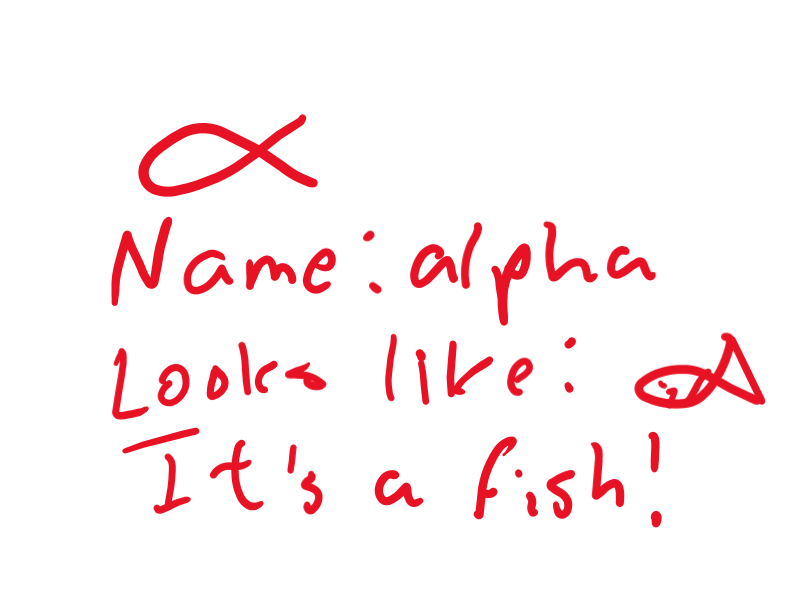 α
Name: alpha
Looks like:
It's a fish!